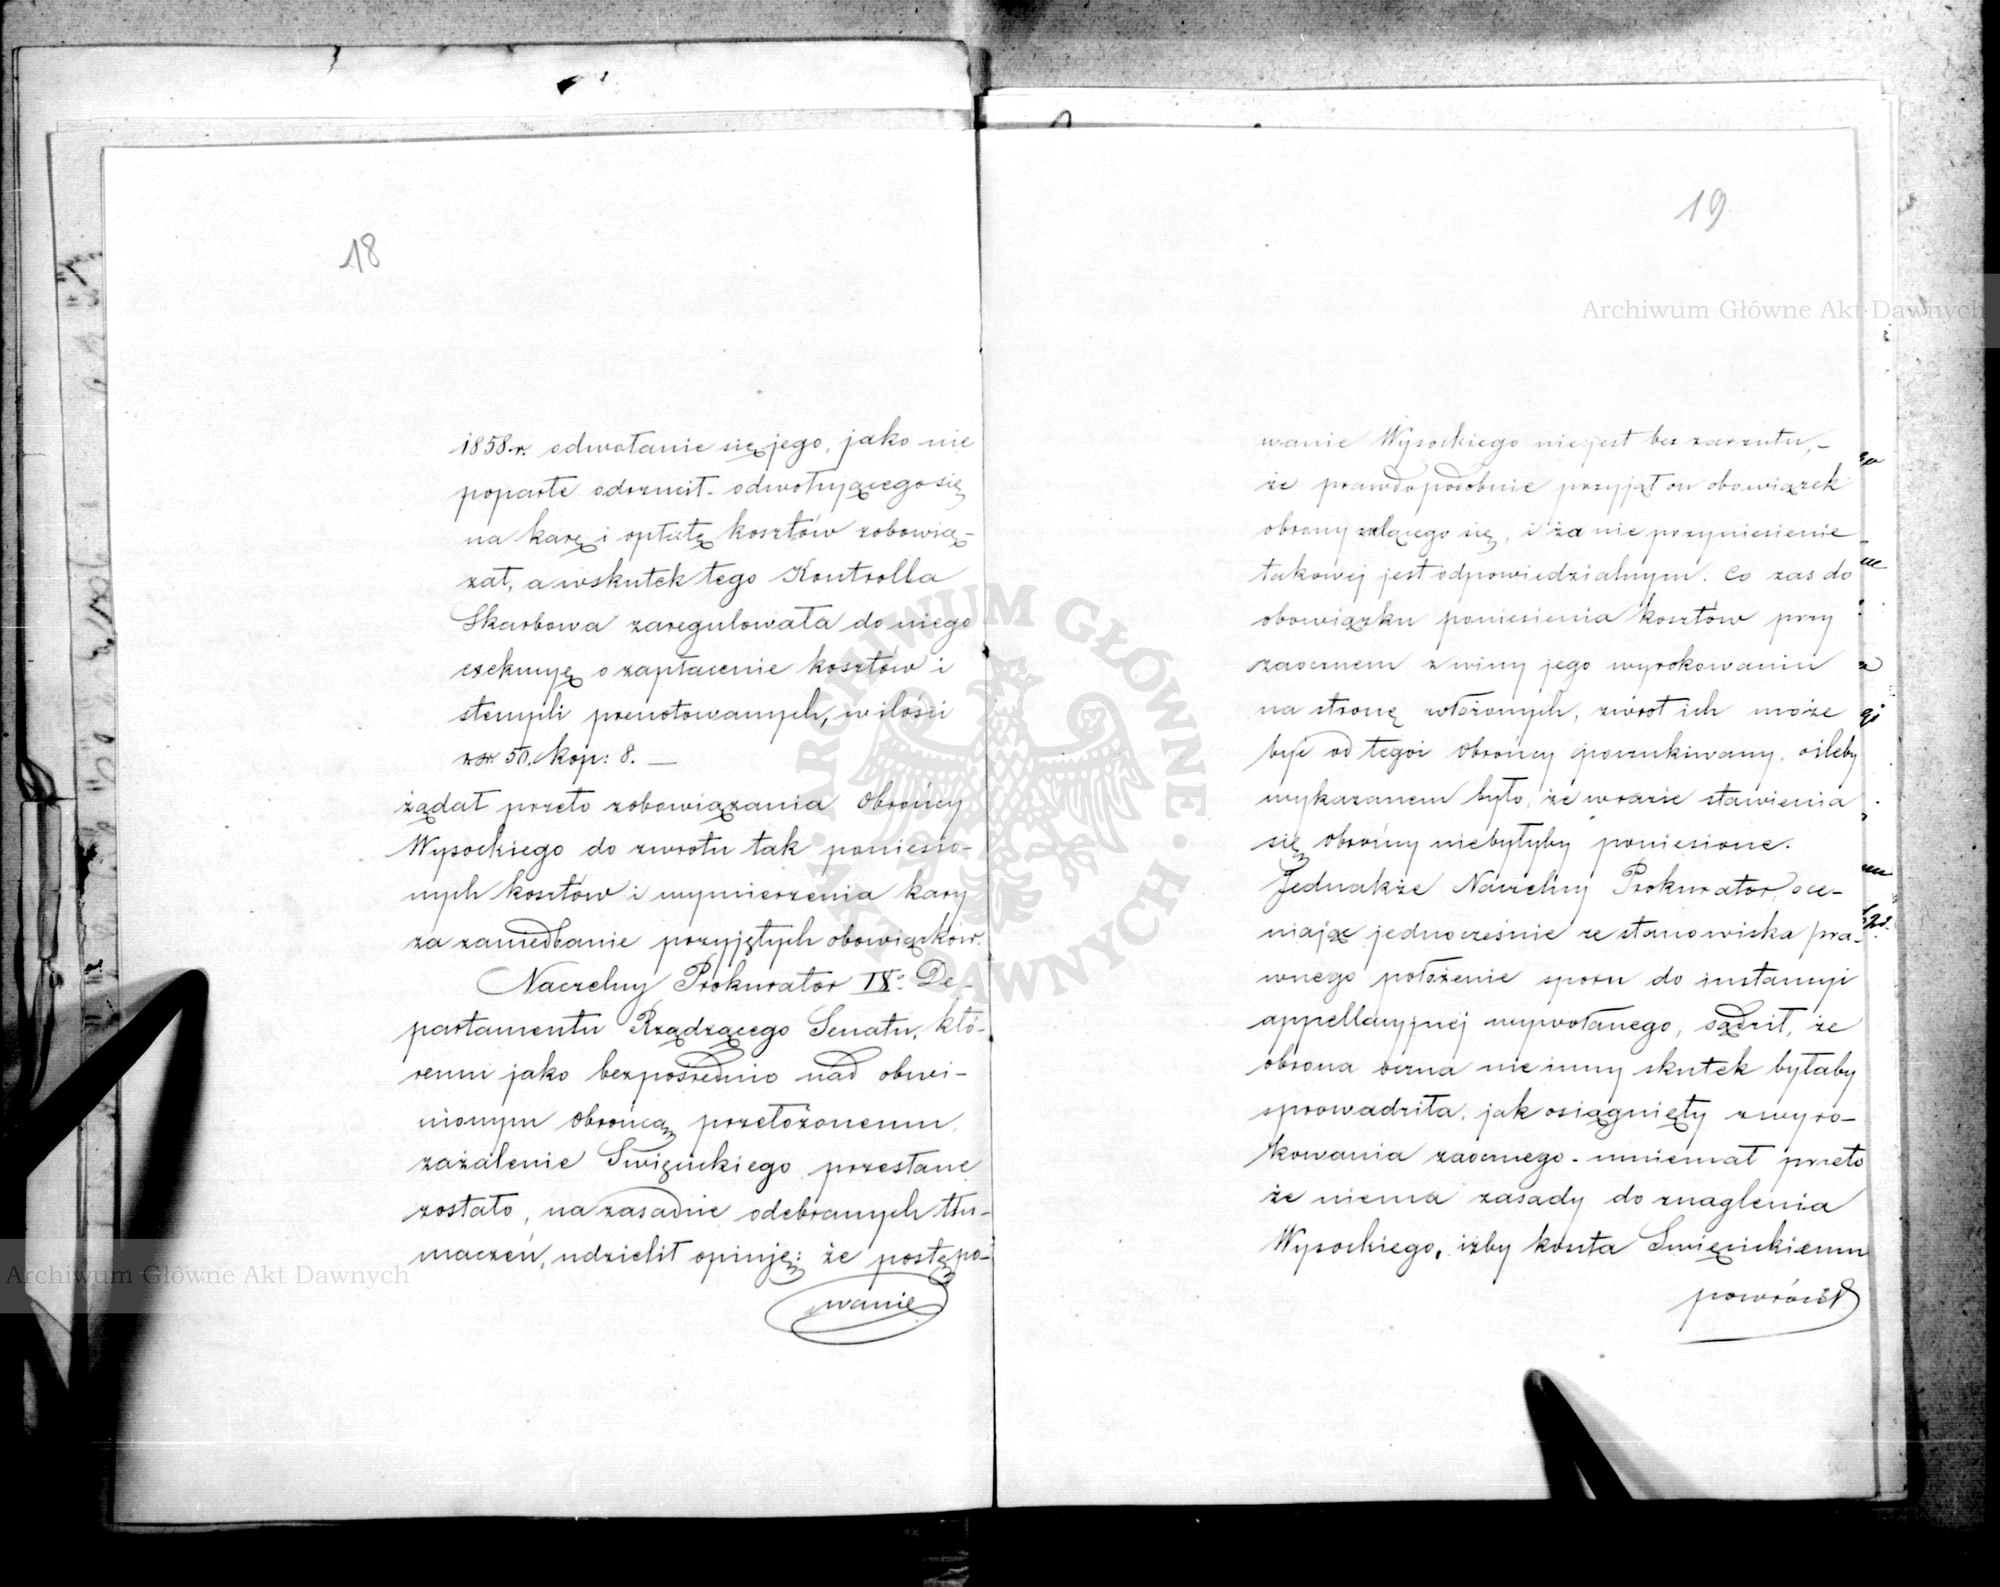 18
1858 r. odwołanie się jego, jako nie
poparte odrzucił - odwołującego się
na karę i opłatę kosztów zobowią-
zał, a wskutek tego Kontrolla
Skarbowa zaregulowała do niego
exekucyę o zapłacenie kosztów i
stempli prenotowanych, w ilości
rsr. 50. kop: 8. —
żądał przeto zobowiązania Obrońcy
Wysockiego do zwrotu tak poniesio-
nych kosztów i wymierzenia kary
za zaniedbanie przyjętych obowiązków.
Naczelny Prokurator IX: De-
partamentu Rządzącego Senatu, któ-
remu jako bezpośrednio nad obwi-
nionym obrońcą przełożonemu,
zażalenie Święcickiego przesłane
zostało, na zasadzie odebranych tłu-
maczeń, udzielił opinję: że postępo-
wanie
19
wanie Wysockiego nie jest bez zarzutu, -
że prawdopodobnie przyjął on obowiązek
obrony żalącego się, i za nie przyniesienie
takowej jest odpowiedzialnym. Co zas do
obowiązku poniesienia kosztów przy
zaocznem z winy jego wyrokowaniu
na stronę włożonych, zwrot ich może
być od tegoż Obrońcy poszukiwany, oileby
wykazanem było, że w razie stawienia
się obrońcy niebyłyby poniesione.
Jednakże Naczelny Prokurator, oce-
niając jednocześnie ze stanowiska pra-
wnego położenie sporu do instancyi
appellacyjnej wywołanego, sądził, że
obrona oczna nie inny skutek byłaby
sprowadziła, jak osiągnięty z wyro-
kowania zaocznego - mniemał przeto
że niema zasady do znaglenia
Wysockiego, iżby koszta Święcickiemu
powrócił
Archiwum Główne Akt Dawnych
Archiwum Główne Akt Dawnych
ARCHIWUM GŁÓWNE AKT DAWNYCH